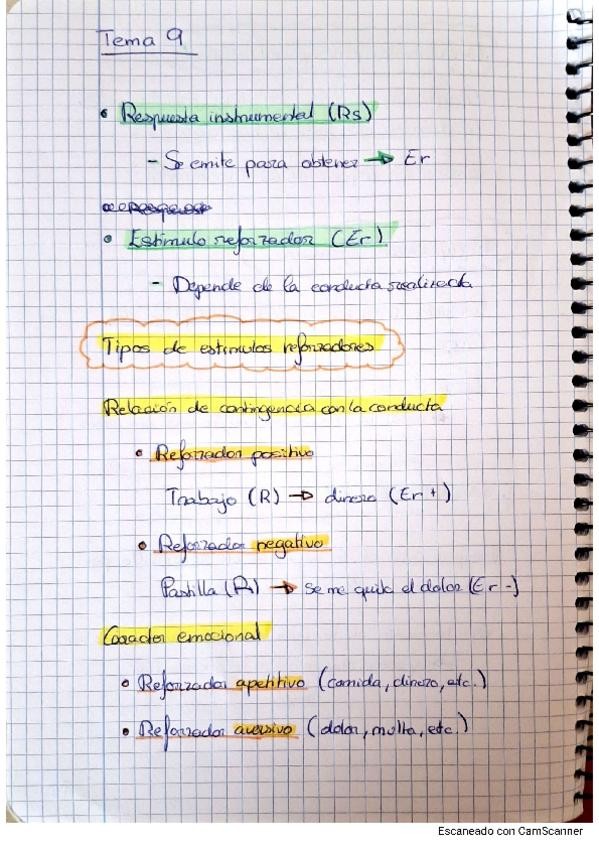 Tema 9
• Respuesta instrumental (Rs)
- Se emite para obtener → Er
• Estímulo reforzador (Er)
- Depende de la conducta realizada
Tipos de estímulos reforzadores
Relación de contingencia con la conducta
• Reforzador positivo
Trabajo (R) → dinero (Er +)
• Reforzador negativo
Pastilla (R) → se me quita el dolor (Er -)
Caracter emocional
• Reforzador apetitivo (comida, dinero, etc.)
• Reforzador aversivo (dolor, multa, etc.)
Escaneado con CamScanner